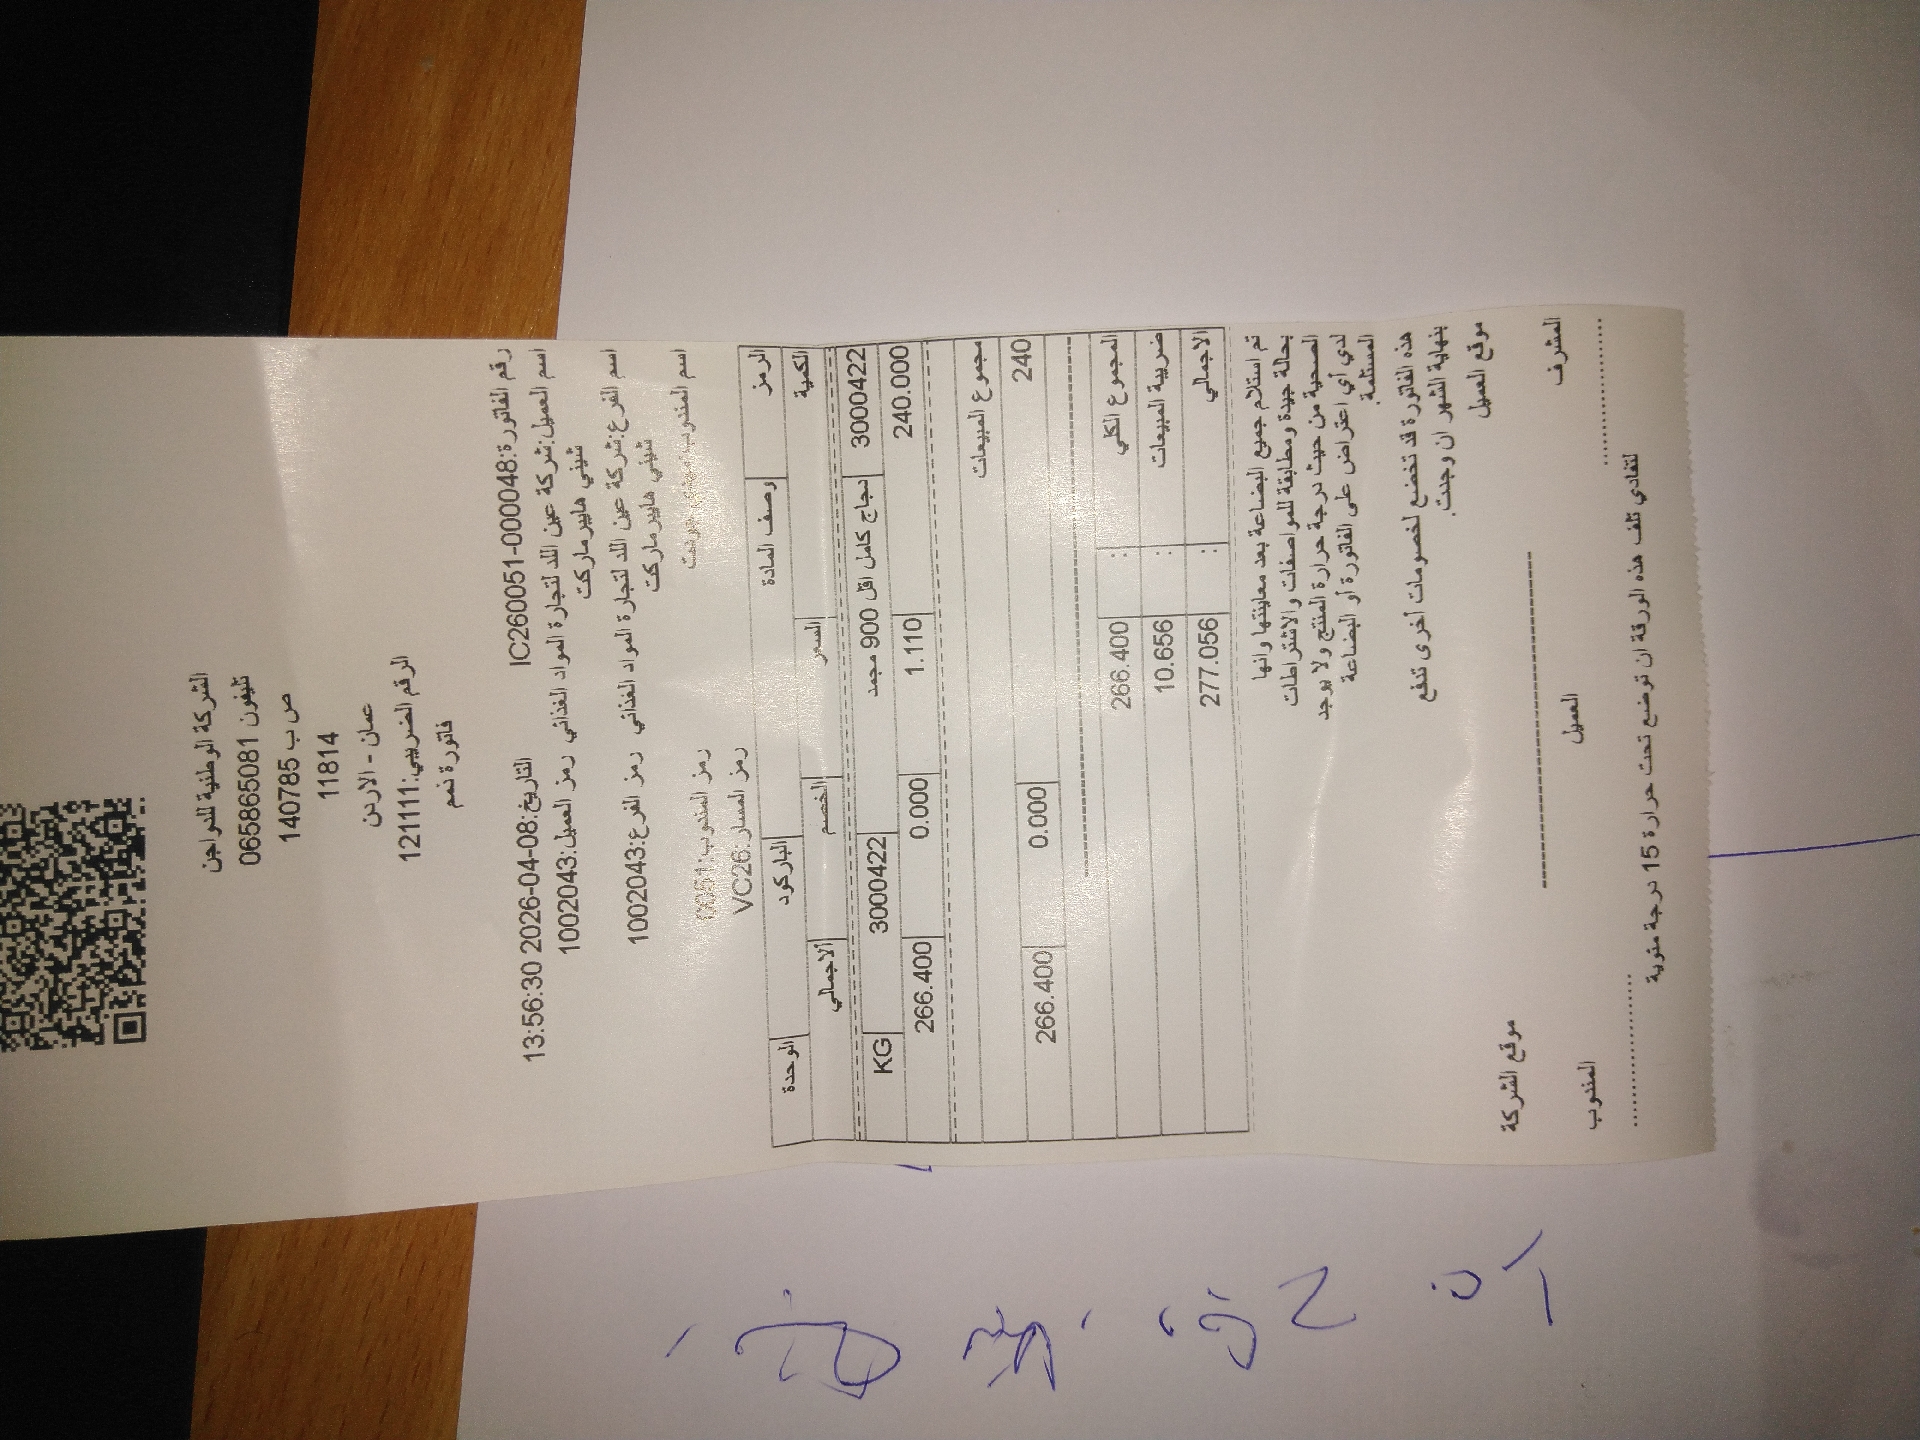 الشركة الوطنية للدواجن
تليفون 065865081
ص ب 140785
11814
عمان - الاردن
الرقم الضريبي:121111
فاتورة ذمم
رقم الفاتورة:IC260051-000048 التاريخ:2026-04-08 13:56:30
اسم العميل:شركة عين اللد لتجارة المواد الغذائي رمز العميل:1002043
شيني هايبر ماركت
اسم الفرع:شركة عين اللد لتجارة المواد الغذائي رمز الفرع:1002043
شيني هايبر ماركت
اسم المندوب: رمز المندوب:0051
رمز المسار:VC26
الرمز وصف المادة الباركود الوحدة
الكمية السعر الخصم الاجمالي
3000422 دجاج كامل اقل 900 مجمد 3000422 KG
240.000 1.110 0.000 266.400
مجموع المبيعات
240 0.000 266.400
المجموع الكلي : 266.400
ضريبة المبيعات : 10.656
الاجمالي : 277.056
تم استلام جميع البضاعة بعد معاينتها وانها
بحالة جيدة ومطابقة للمواصفات والاشتراطات
الصحية من حيث درجة حرارة المنتج ولا يوجد
لدي أي اعتراض على الفاتورة أو البضاعة
المستلمة.
هذه الفاتورة قد تخضع لخصومات أخرى تدفع
بنهاية الشهر ان وجدت.
موقع العميل موقع الشركة
المشرف العميل المندوب
لتفادي تلف هذه الورقة ان توضع تحت حرارة 15 درجة مئوية